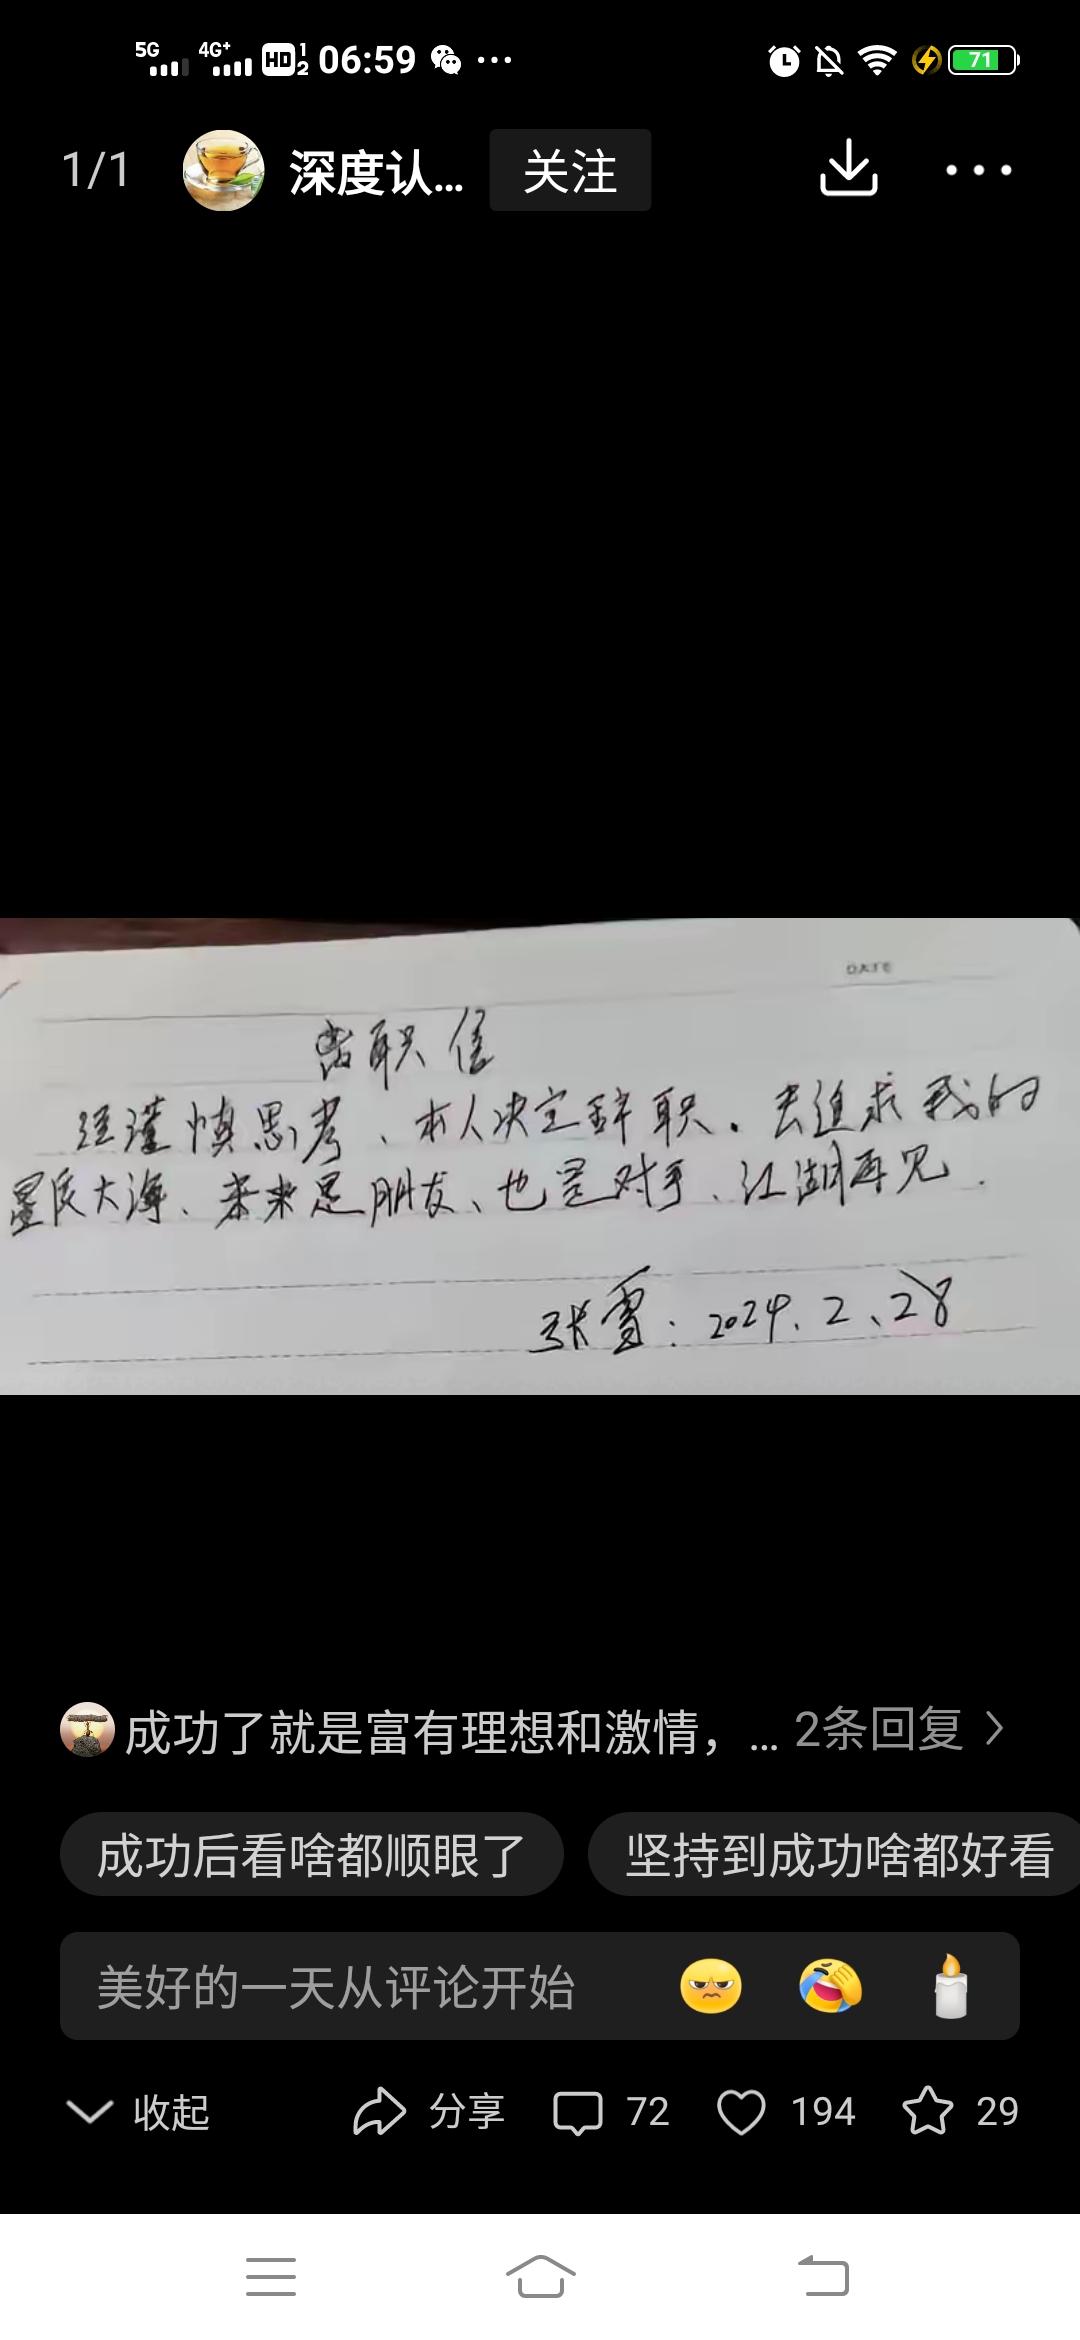 5G 4G+ HD 1 2 06:59 71
1/1 深度认... 关注
DATE
离职信
经谨慎思考、本人决定辞职.去追求我的
星辰大海、未来是朋友、也是对手、江湖再见.
张雪:2024.2、28
成功了就是富有理想和激情，... 2条回复
成功后看啥都顺眼了 坚持到成功啥都好看
美好的一天从评论开始
收起 分享 72 194 29